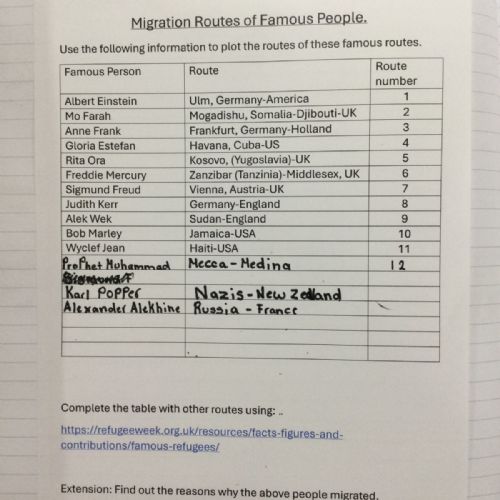 Migration Routes of Famous People.
Use the following information to plot the routes of these famous routes.
Famous Person Route Route number
Albert Einstein Ulm, Germany-America 1
Mo Farah Mogadishu, Somalia-Djibouti-UK 2
Anne Frank Frankfurt, Germany-Holland 3
Gloria Estefan Havana, Cuba-US 4
Rita Ora Kosovo, (Yugoslavia)-UK 5
Freddie Mercury Zanzibar (Tanzinia)-Middlesex, UK 6
Sigmund Freud Vienna, Austria-UK 7
Judith Kerr Germany-England 8
Alek Wek Sudan-England 9
Bob Marley Jamaica-USA 10
Wyclef Jean Haiti-USA 11
Prophet Muhammad Mecca - Medina 12
Karl Popper Nazis - New Zealand
Alexander Alekhine Russia - France
Complete the table with other routes using: ..
https://refugeeweek.org.uk/resources/facts-figures-and-
contributions/famous-refugees/
Extension: Find out the reasons why the above people migrated.